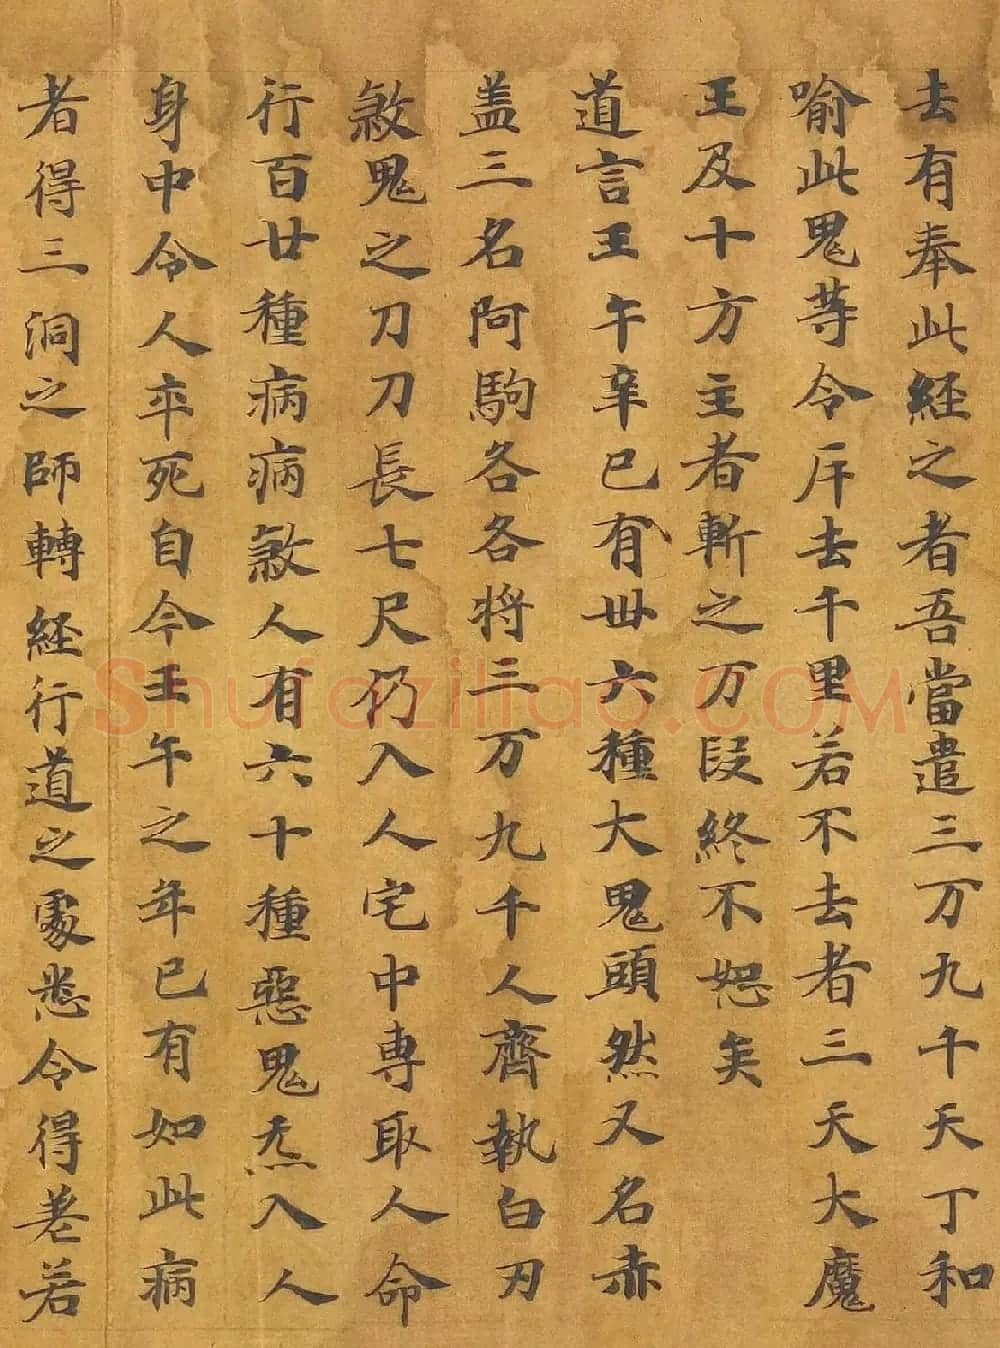 去有奉此経之者吾當遣三万九千天丁和
喻此鬼䓁令斥去千里若不去者三天大魔
王及十方主者斬之万段終不恕矣
道言壬午辛巳有丗六種大鬼頭然又名赤
盖三名阿駒各各将三万九千人齊執白刃
煞鬼之刀刀長七尺仍入人宅中専取人命
行百廿種病病煞人有六十種惡鬼炁入人
身中令人卒死自今壬午之年已有如此病
者得三洞之師轉経行道之處悉令得差若
Shufaziliao.COM